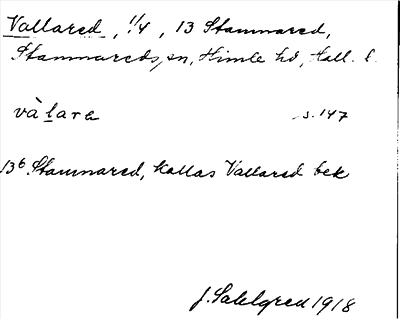 Vallared, 1/4, 13 Stamnared,
Stamnareds sn, Himle hd, Hall. l.
vàlara s. 147
13b Stamnared, kallas Vallared bek
J. Sahlgren 1918